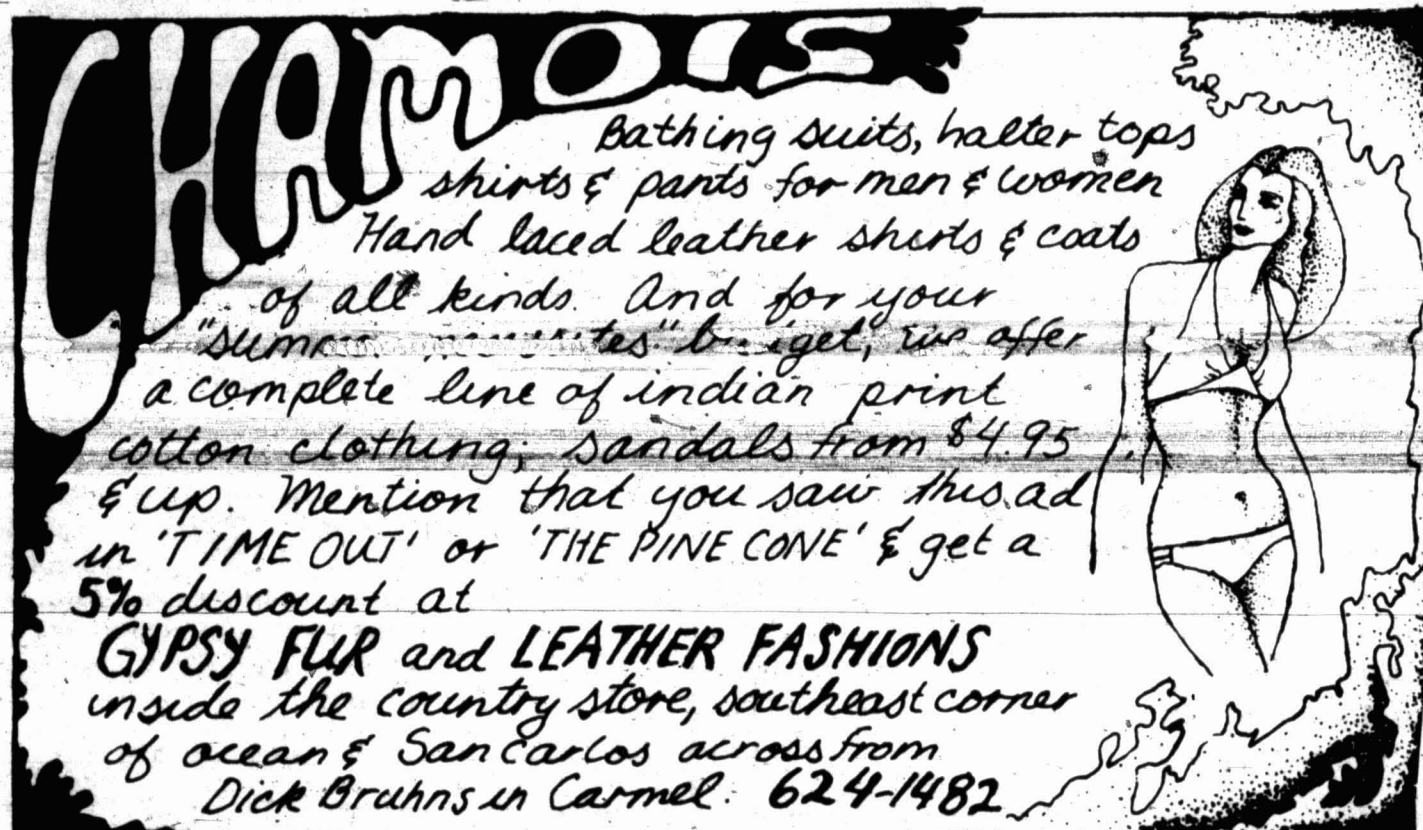 CHAMOIS
Bathing suits, halter tops
shirts & pants for men & women
Hand laced leather shirts & coats
of all kinds. And for your
we offer
a complete line of indian print
cotton clothing; sandals from $4.95
& up. Mention that you saw this ad
in 'TIME OUT' or 'THE PINE CONE' & get a
5% discount at
GYPSY FUR and LEATHER FASHIONS
inside the country store, southeast corner
of ocean & San Carlos across from
Dick Bruhns in Carmel. 624-1482